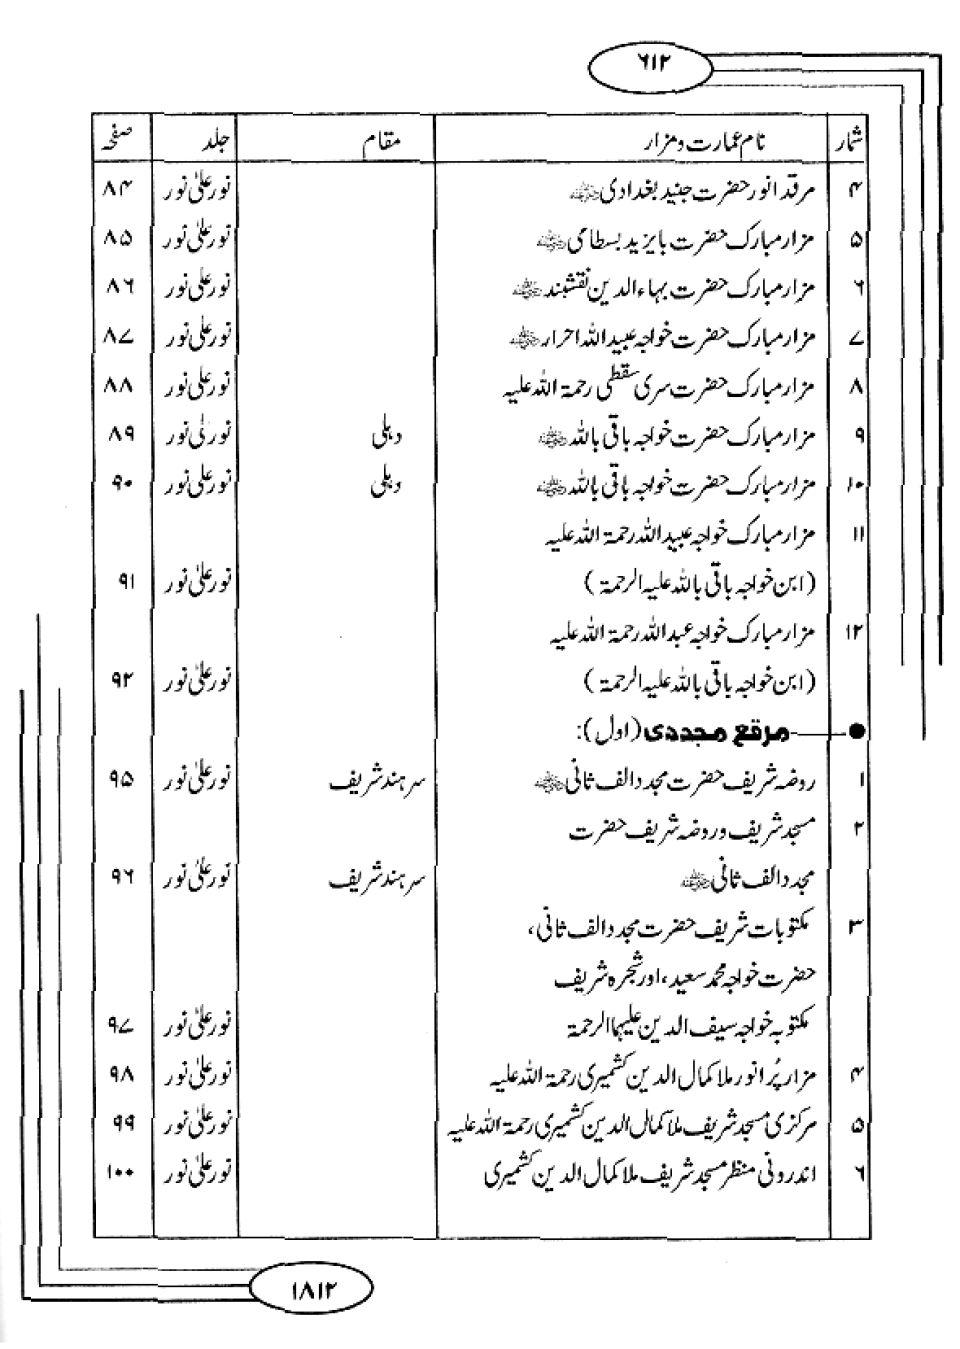 ۶۱۲
شمار نام عمارت و مزار مقام جلد صفحہ
۴ مرقد انور حضرت جنید بغدادی ؓ نور علیٰ نور ۸۴
۵ مزار مبارک حضرت بایزید بسطامی ؓ نور علیٰ نور ۸۵
۶ مزار مبارک حضرت بہاء الدین نقشبند ؓ نور علیٰ نور ۸۶
۷ مزار مبارک حضرت خواجہ عبید اللہ احرار ؓ نور علیٰ نور ۸۷
۸ مزار مبارک حضرت سری سقطی رحمۃ اللہ علیہ نور علیٰ نور ۸۸
۹ مزار مبارک حضرت خواجہ باقی باللہ ؓ دہلی نور علیٰ نور ۸۹
۱۰ مزار مبارک حضرت خواجہ باقی باللہ ؓ دہلی نور علیٰ نور ۹۰
۱۱ مزار مبارک خواجہ عبید اللہ رحمۃ اللہ علیہ
(ابن خواجہ باقی باللہ علیہ الرحمۃ) نور علیٰ نور ۹۱
۱۲ مزار مبارک خواجہ عبد اللہ رحمۃ اللہ علیہ
(ابن خواجہ باقی باللہ علیہ الرحمۃ) نور علیٰ نور ۹۲
● مرقع مجددی (اول):
۱ روضہ شریف حضرت مجدد الف ثانی ؓ سرہند شریف نور علیٰ نور ۹۵
۲ مسجد شریف و روضہ شریف حضرت
مجدد الف ثانی ؓ سرہند شریف نور علیٰ نور ۹۶
۳ مکتوبات شریف حضرت مجدد الف ثانی،
حضرت خواجہ محمد سعید، اور شجرہ شریف
مکتوبہ خواجہ سیف الدین علیہا الرحمۃ نور علیٰ نور ۹۷
۴ مزار پُر انور ملا کمال الدین کشمیری رحمۃ اللہ علیہ نور علیٰ نور ۹۸
۵ مرکزی مسجد شریف ملا کمال الدین کشمیری رحمۃ اللہ علیہ نور علیٰ نور ۹۹
۶ اندرونی منظر مسجد شریف ملا کمال الدین کشمیری نور علیٰ نور ۱۰۰
۱۸۱۲